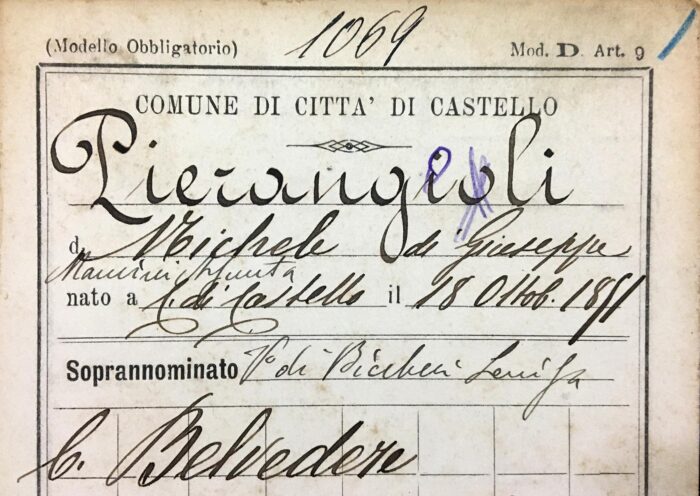 1069
(Modello Obbligatorio) Mod. D. Art. 9
COMUNE DI CITTA' DI CASTELLO
Pierangeli
d Michele di Giuseppe
Mancini Assunta
nato a C. di Castello il 18 Ottob. 1851
Soprannominato Vo di
C. Belvedere